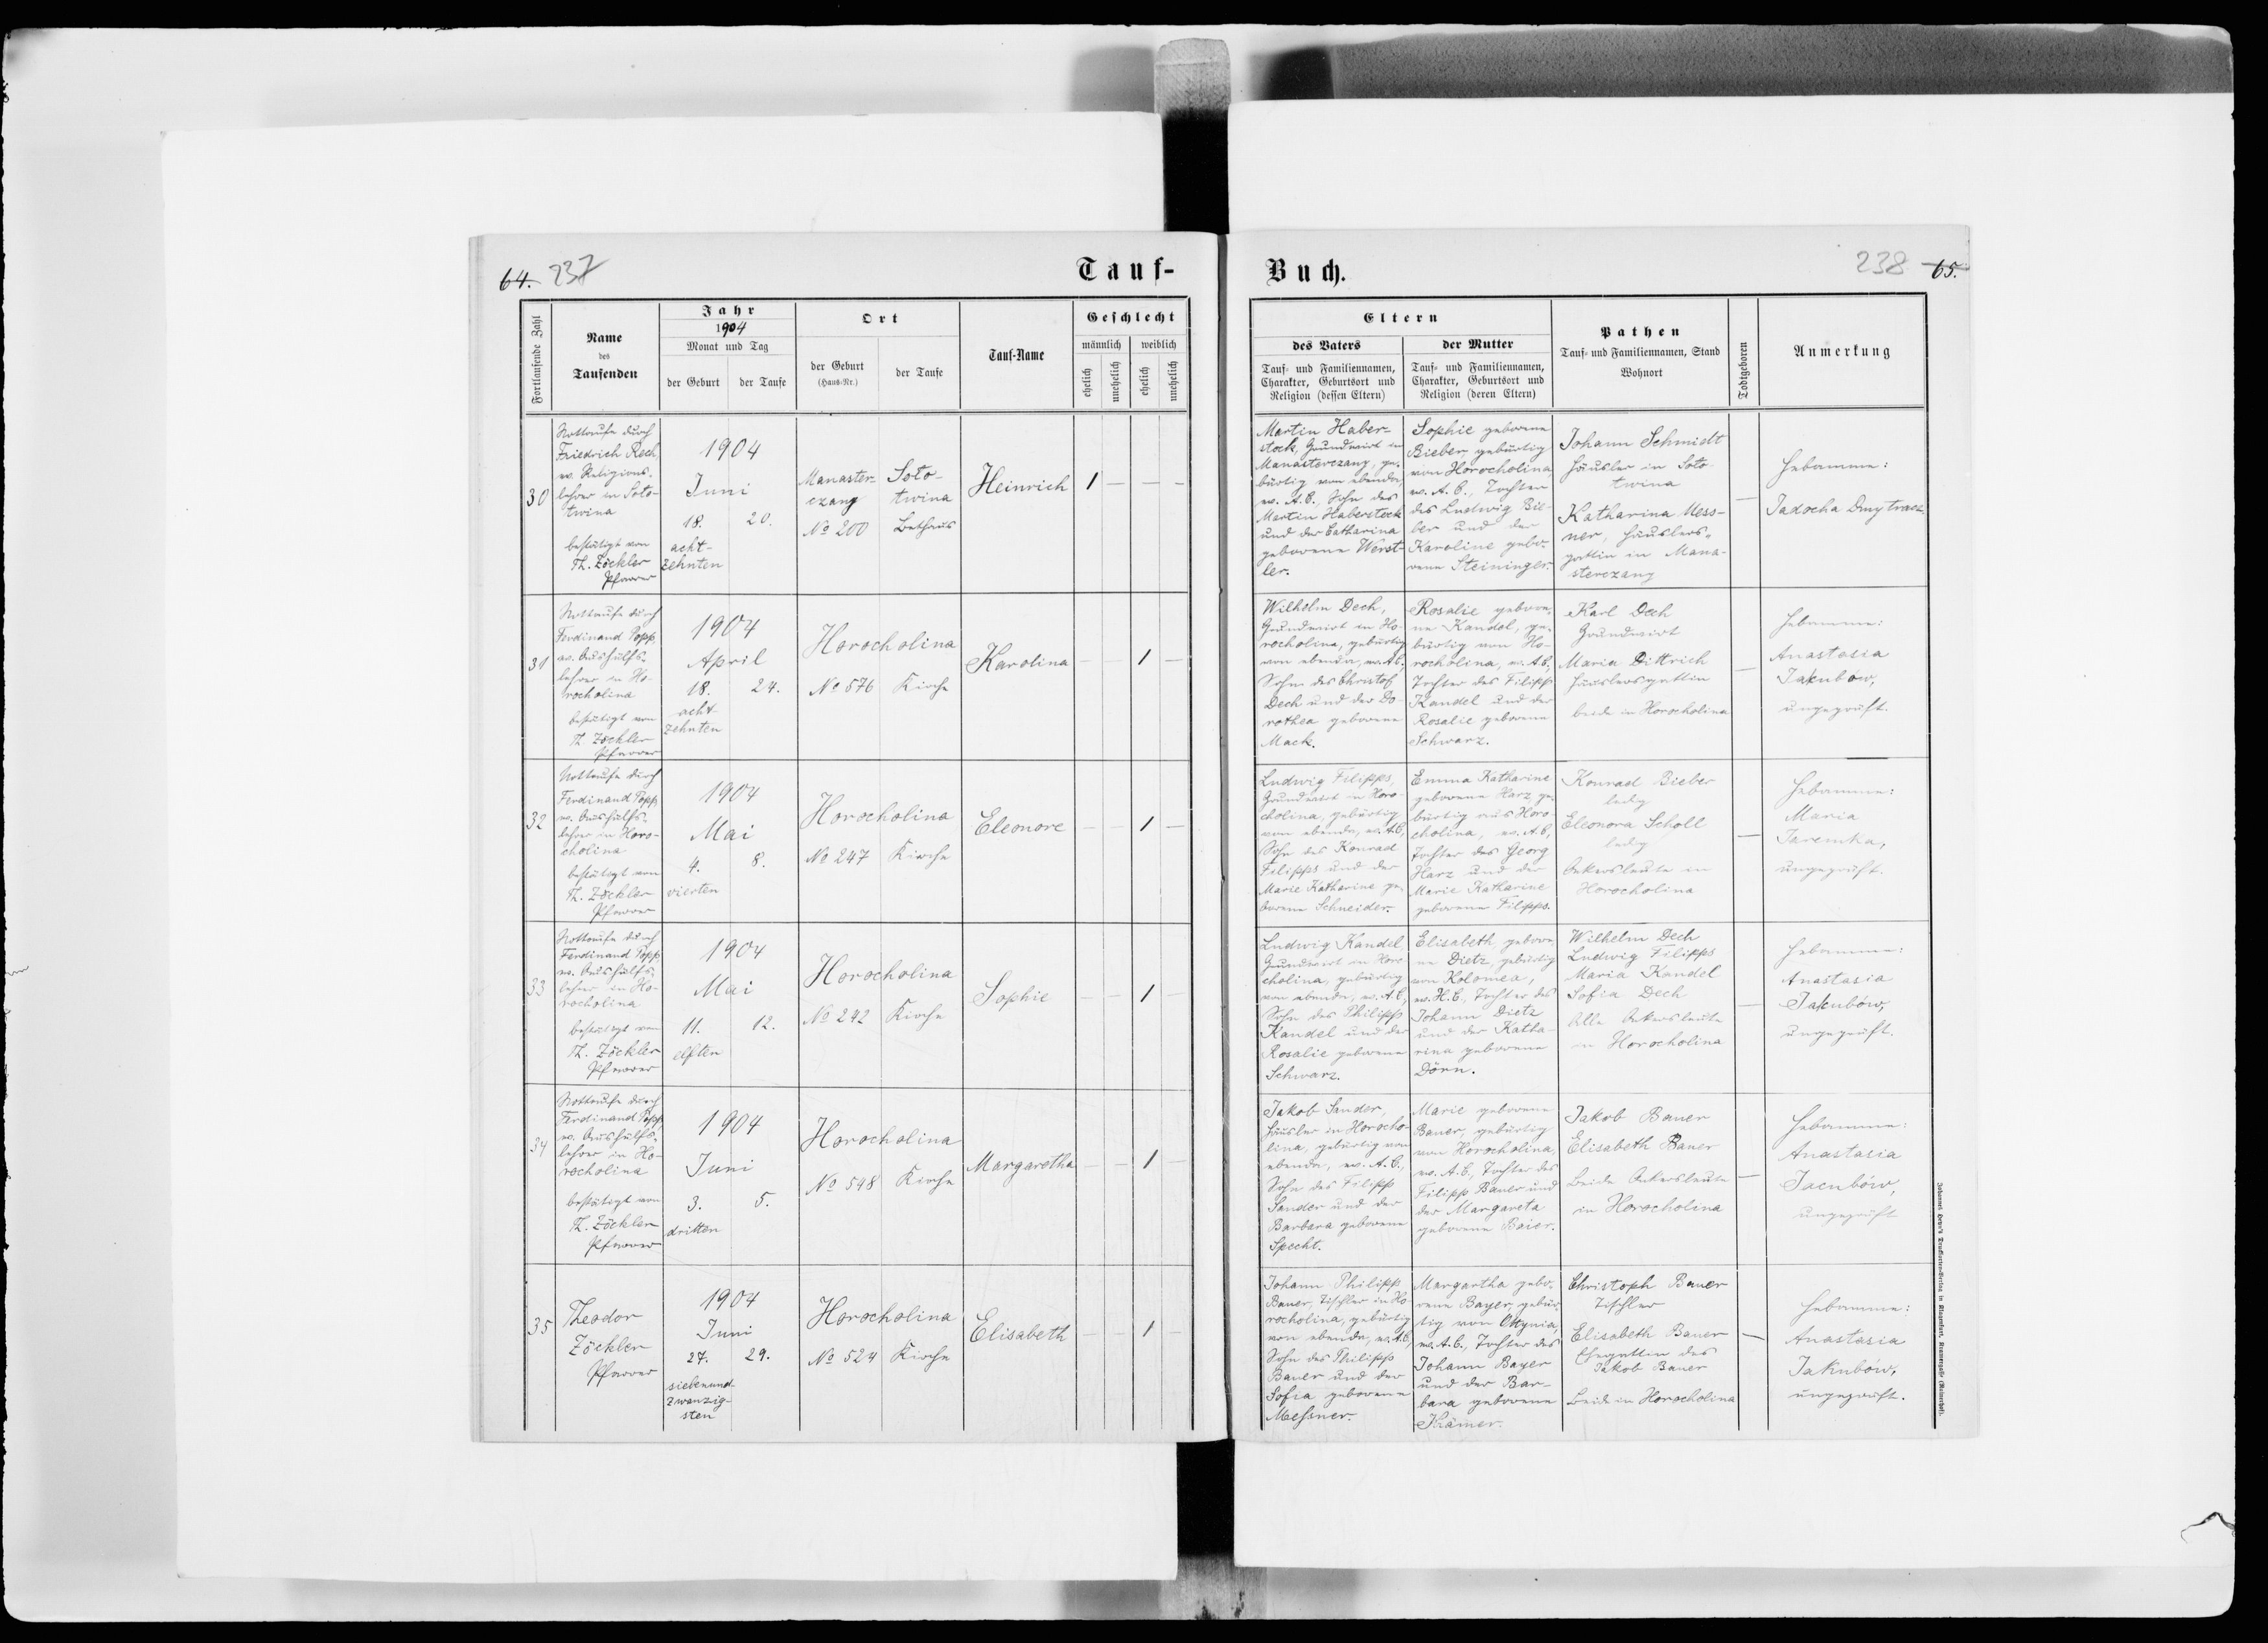 64. 237
Tauf-
Fortlaufende Zahl
Name
des
Taufenden
Jahr
1904
Monat und Tag
der Geburt
der Taufe
Ort
der Geburt
(Haus-Nr.)
der Taufe
Tauf-Name
Geschlecht
männlich
weiblich
ehelich
unehelich
ehelich
unehelich
30
Nottaufe durch
Friedrich Rech,
ev. Religions-
lehrer in Soto-
twina
bestätigt von
Th. Zöckler
Pfarrer
1904
Juni
18. 20.
acht-
zehnten
Manaster-
czany
No 200
Soto-
twina
Bethaus
Heinrich
1 — — —
31
Nottaufe durch
Ferdinand Popp
ev. Aushülfs-
lehrer in Ho-
rocholina
bestätigt von
Th. Zöckler
Pfarrer
1904
April
18. 24.
acht-
zehnten
Horocholina
No 576 Kirche
Karolina
— — 1 —
32
Nottaufe durch
Ferdinand Popp
ev. Aushülfs-
lehrer in Horo-
cholina
bestätigt von
Th. Zöckler
Pfarrer
1904
Mai
4. 8.
vierten
Horocholina
No 247 Kirche
Eleonore
— — 1 —
33
Nottaufe durch
Ferdinand Popp,
ev. Aushülfs-
lehrer in Ho-
rocholina
bestätigt von
Th. Zöckler
Pfarrer
1904
Mai
11. 12.
elften
Horocholina
No 242 Kirche
Sophie
— — 1 —
34
Nottaufe durch
Ferdinand Popp,
ev. Aushülfs-
lehrer in Ho-
rocholina
bestätigt von
Th. Zöckler
Pfarrer
1904
Juni
3. 5.
dritten
Horocholina
No 548 Kirche
Margaretha
— — 1 —
35
Theodor
Zöckler
Pfarrer
1904
Juni
27. 29.
siebenund-
zwanzig-
sten
Horocholina
No 524 Kirche
Elisabeth
— — 1 —
Buch.
238 65.
Eltern
des Vaters
Tauf- und Familiennamen,
Charakter, Geburtsort und
Religion (dessen Eltern)
der Mutter
Tauf- und Familiennamen,
Charakter, Geburtsort und
Religion (deren Eltern)
Pathen
Tauf- und Familiennamen, Stand
Wohnort
Todtgeboren
Anmerkung
Martin Haber-
stock, Grundwirt in
Manasterczany, ge-
bürtig von ebenda,
ev. A.B., Sohn des
Martin Haberstock
und der Catharina
geborene Werst-
ler.
Sophie geborene
Bieber, gebürtig
von Horocholina,
ev. A.B., Tochter
des Ludwig Bie-
ber und der
Karoline gebo-
rene Steininger.
Johann Schmidt
Häusler in Soto-
twina
Katharina Mess-
ner, Häuslers-
gattin in Mana-
sterczany
—
Hebamme:
Jadocha Dmytracz.
Wilhelm Dech,
Grundwirt in Ho-
rocholina, gebürtig
von ebenda, ev. A.B.,
Sohn des Christof
Dech und der Do-
rothea geborene
Mack.
Rosalie gebore-
ne Kandel, ge-
bürtig von Ho-
rocholina, ev. A.B.,
Tochter des Filipp
Kandel und der
Rosalie geborene
Schwarz.
Karl Dech
Grundwirt
Maria Dittrich
Häuslersgattin
beide in Horocholina
—
Hebamme:
Anastasia
Jakubow,
ungeprüft.
Ludwig Filipps,
Grundwirt in Horo-
cholina, gebürtig
von ebenda, ev. A.B.,
Sohn des Konrad
Filipps und der
Marie Katharine ge-
borene Schneider.
Emma Katharine
geborene Harz ge-
bürtig aus Horo-
cholina, ev. A.B.,
Tochter des Georg
Harz und der
Marie Katharine
geborene Filipps.
Konrad Bieber
ledig
Eleonora Scholl
ledig
Ackersleute in
Horocholina
—
Hebamme:
Maria
Jaremka,
ungeprüft.
Ludwig Kandel
Grundwirt in Horo-
cholina, gebürtig
von ebenda, ev. A.B.,
Sohn des Philipp
Kandel und der
Rosalie geborene
Schwarz.
Elisabeth gebore-
ne Dietz, gebürtig
von Kolomea,
ev. H.B., Tochter des
Johann Dietz
und der Katha-
rina geborene
Dörn.
Wilhelm Dech
Ludwig Filipps
Maria Kandel
Sofia Dech
Alle Ackersleute
in Horocholina
—
Hebamme:
Anastasia
Jakubów,
ungeprüft.
Jakob Sander,
Häusler in Horocho-
lina, gebürtig von
ebenda, ev. A.B.,
Sohn des Filipp
Sander und der
Barbara geborene
Specht.
Marie geborene
Bauer, gebürtig
von Horocholina,
ev. A.B., Tochter des
Filipp Bauer und
der Margareta
geborene Baier.
Jakob Bauer
Elisabeth Bauer
Beide Ackersleute
in Horocholina
—
Hebamme:
Anastasia
Jacubów,
ungeprüft
Johann Philipp
Bauer, Tischler in Ho-
rocholina, gebürtig
von ebenda, ev. A.B.,
Sohn des Philipp
Bauer und der
Sofia geborene
Messner.
Margartha gebo-
rene Bayer, gebür-
tig von Ottynia,
ev. A.B., Tochter des
Johann Bayer
und der Bar-
bara geborene
Krämer.
Christoph Bauer
Tischler
Elisabeth Bauer
Ehegattin des
Jakob Bauer
Beide in Horocholina
—
Hebamme:
Anastasia
Jakubów,
ungeprüft.